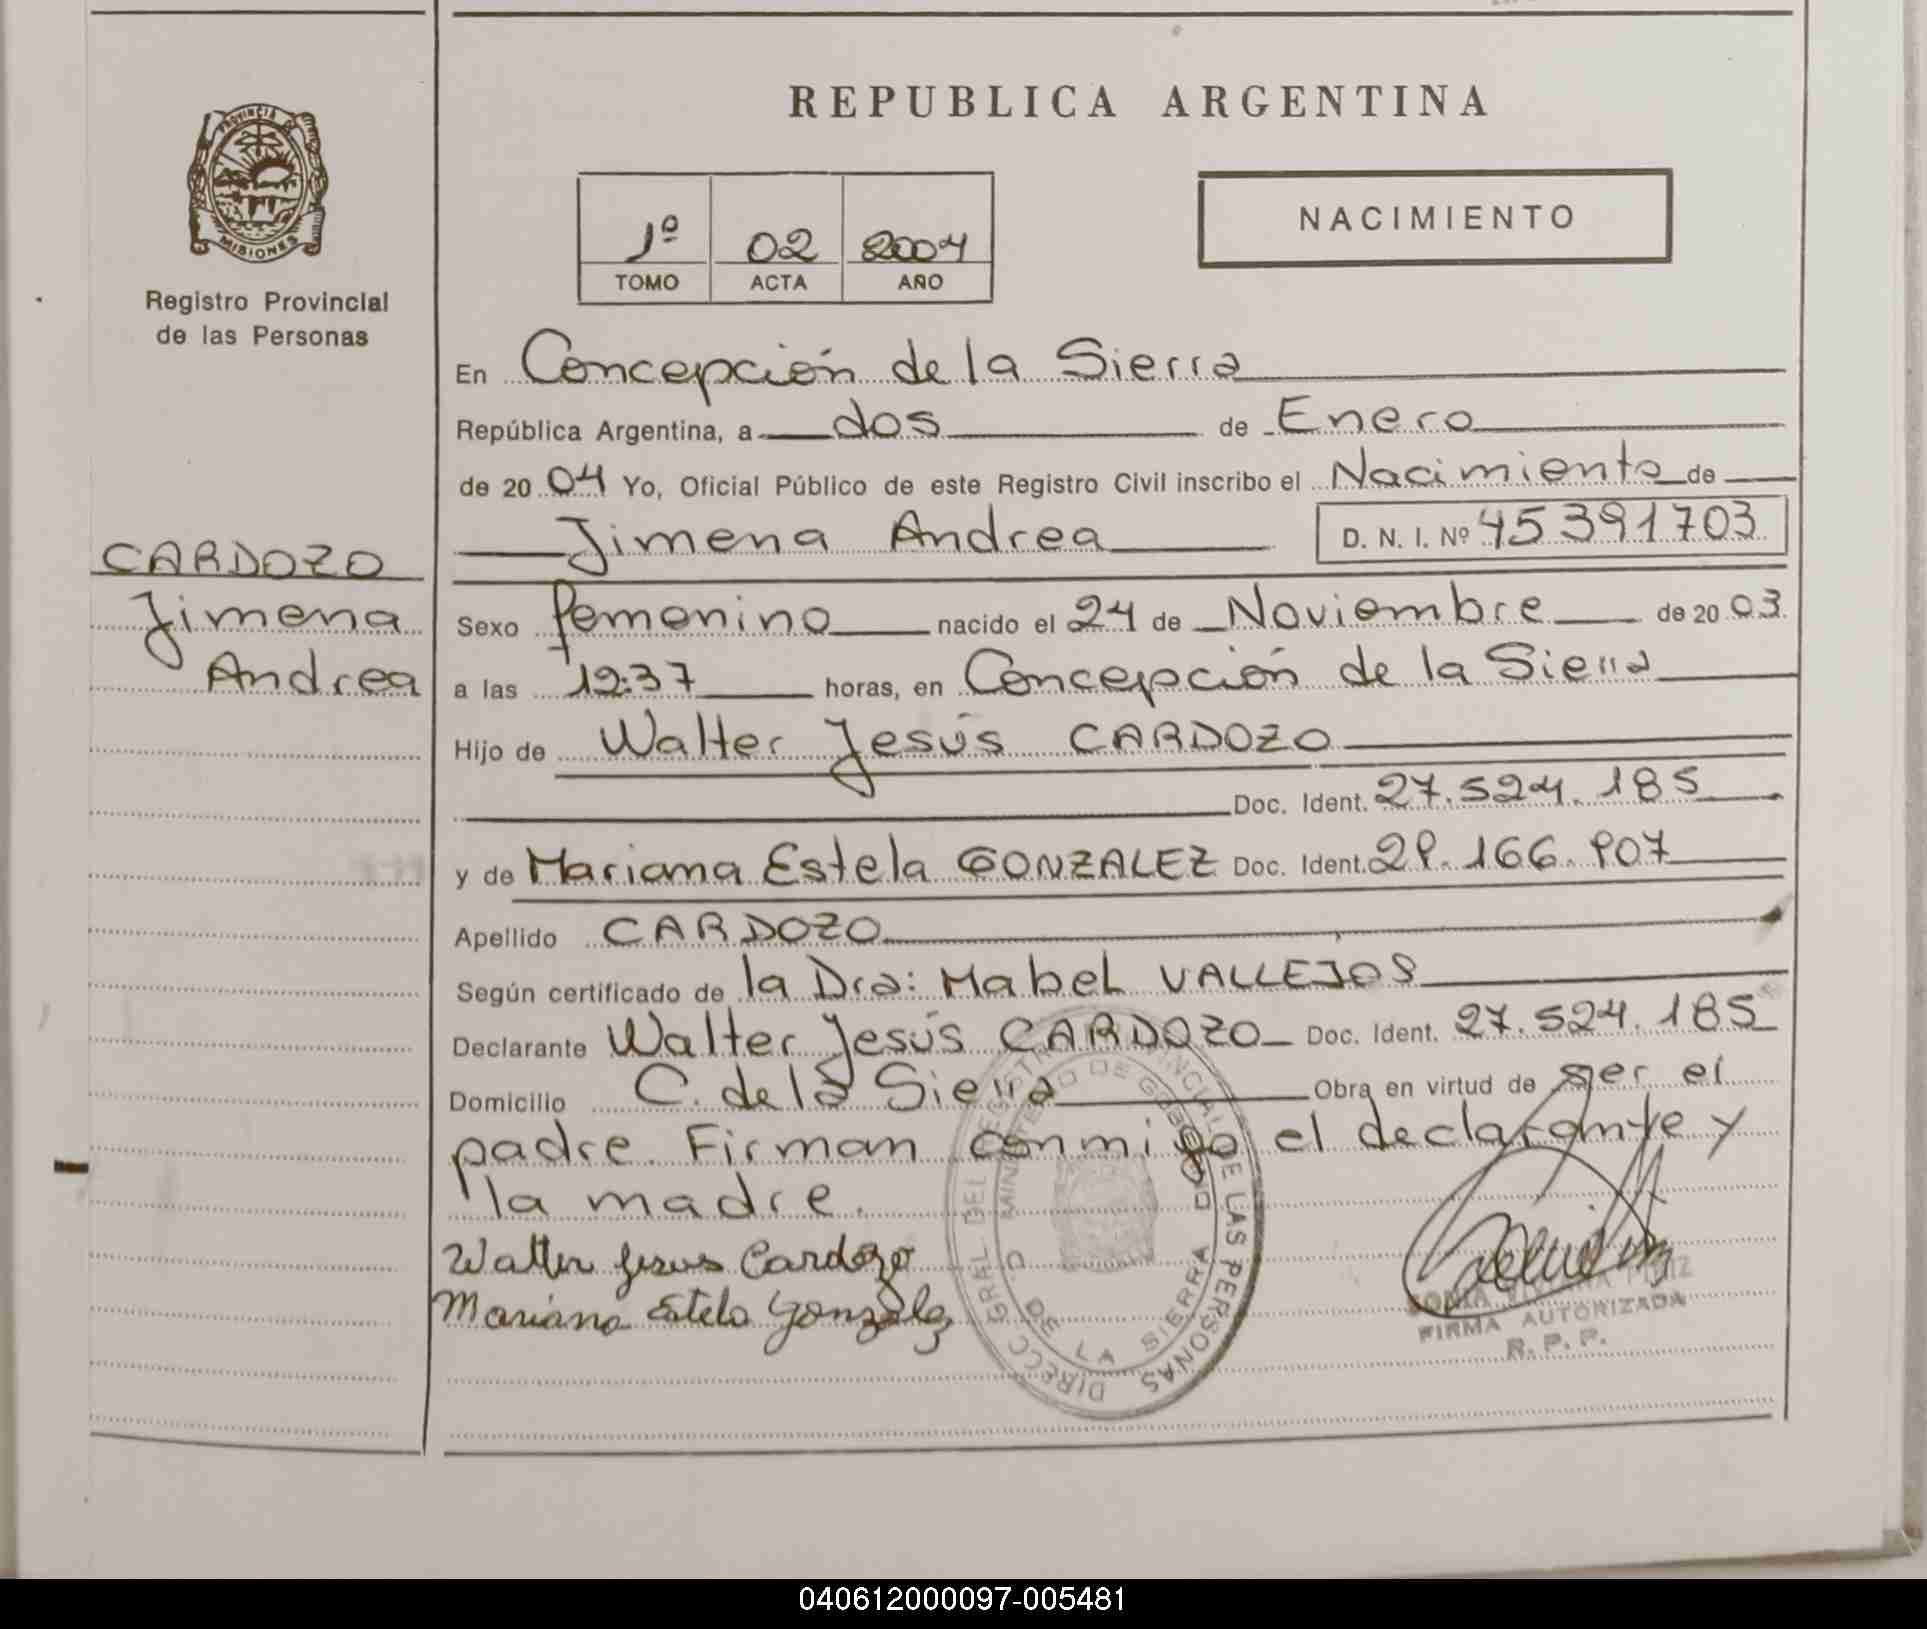 REPUBLICA ARGENTINA
PROVINCIA DE
MISIONES
Registro Provincial
de las Personas
1º 02 2004
TOMO ACTA AÑO
NACIMIENTO
CARDOZO
Jimena
Andrea
En Concepción de la Sierra
República Argentina, a dos de Enero
de 2004 Yo, Oficial Público de este Registro Civil inscribo el Nacimiento de
Jimena Andrea D. N. I. Nº 45391703
Sexo femenino nacido el 24 de Noviembre de 2003.
a las 12:37 horas, en Concepción de la Sierra
Hijo de Walter Jesús CARDOZO
Doc. Ident. 27.524.185
y de Mariana Estela GONZALEZ Doc. Ident. 29.166.907
Apellido CARDOZO
Según certificado de la Dra: Mabel VALLEJOS
Declarante Walter Jesús CARDOZO Doc. Ident. 27.524.185
Domicilio C. de la Sierra Obra en virtud de ser el
padre. Firman conmigo el declarante y
la madre.
Walter Jesus Cardozo
Mariana Estela Gonzalez
DIRECC GRAL DEL REGISTRO PROVINCIAL DE LAS PERSONAS
MINISTERIO DE GOBIERNO
DE LA SIERRA
SONIA
FIRMA AUTORIZADA
R. P. P.
040612000097-005481